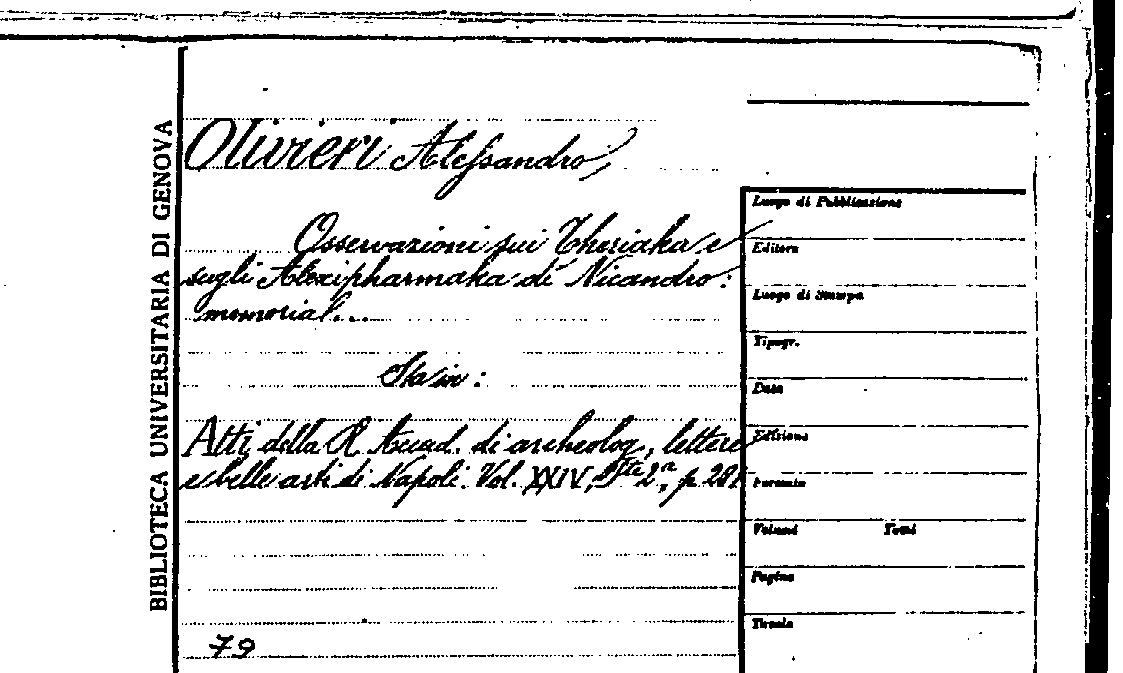 BIBLIOTECA UNIVERSITARIA DI GENOVA
Olivieri Alessandro,
Osservazioni sui Theriaka e
sugli Alexipharmaka di Nicandro:
memorial...
Sta in:
Atti della R. Accad. di archeolog, lettere
e belle arti di Napoli. Vol. XXIV, Pte 2a, p
79
Luogo di Pubblicazione
Editore
Luogo di Stampa
Tipogr.
Data
Edizione
Formato
Volumi Tomi
Pagine
Tavole